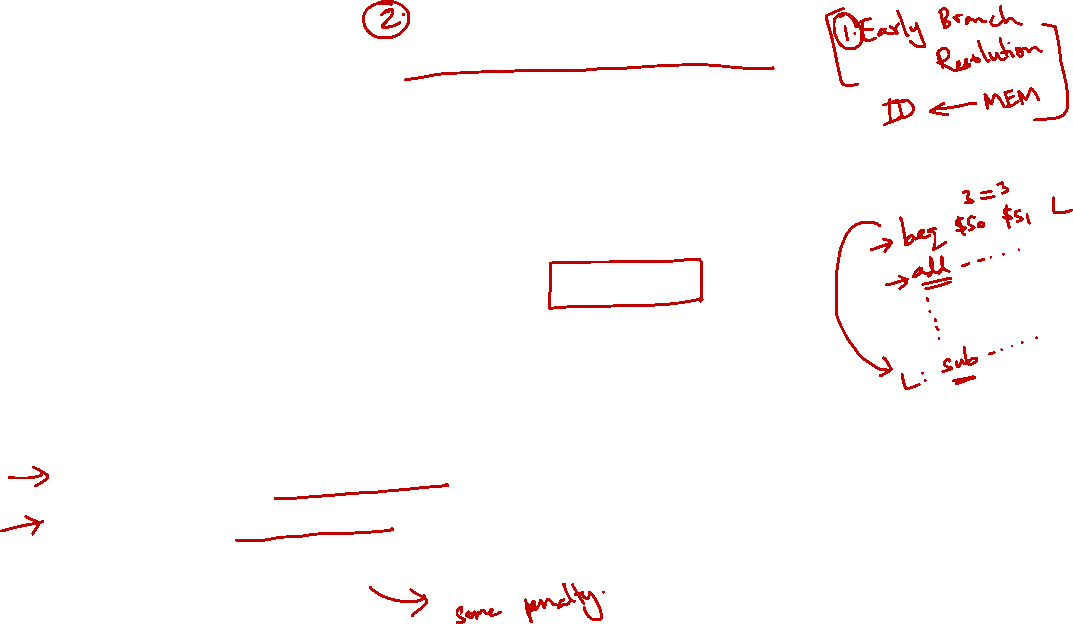 2.
1. Early Branch
Resolution
ID ← MEM
3 = 3
→ beq $s0 $s1 L
→ add - - ......
L: sub - ......
→ some penalty.